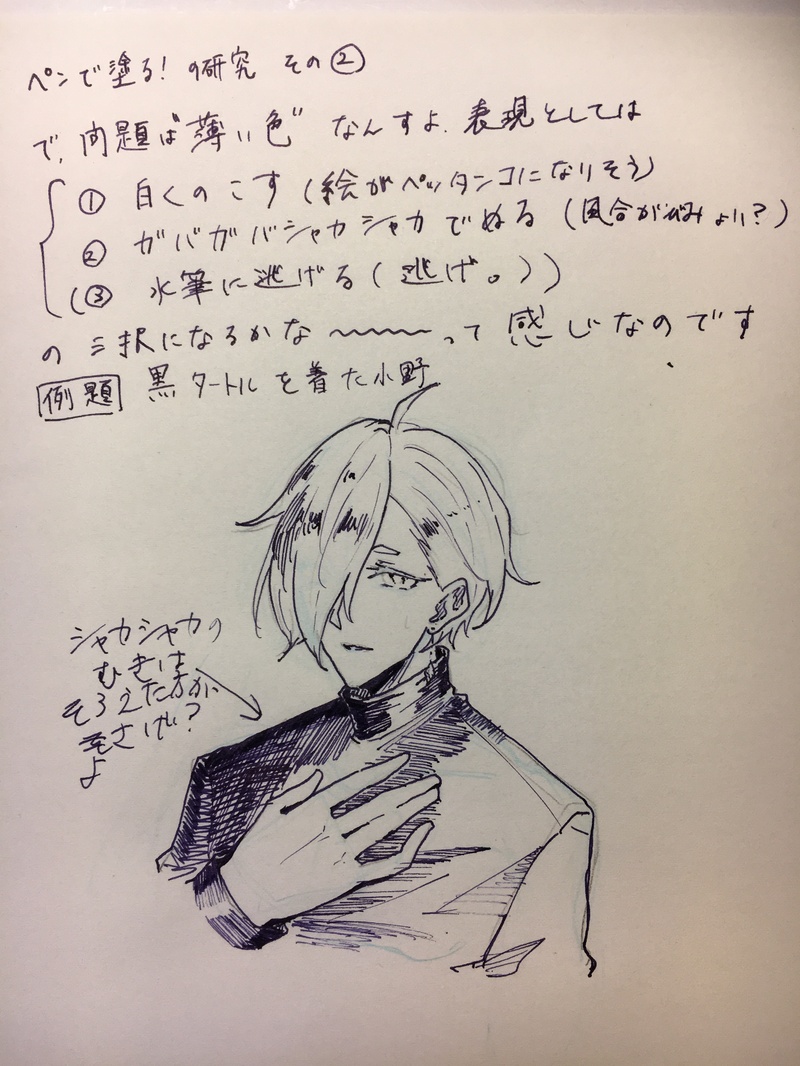 ペンで塗る! の研究 その②
で、問題は"薄い色" なんすよ. 表現としては
① 白くのこす (絵がペッタンコになりそう)
② ガバガバシャカシャカでぬる (風合が
(③ 水筆に逃げる (逃げ。))
の三択になるかな〜〜〜って感じなのです
例題 黒タートルを着た小野
シャカシャカの
むきは
そろえた方が
よさげ?
よ